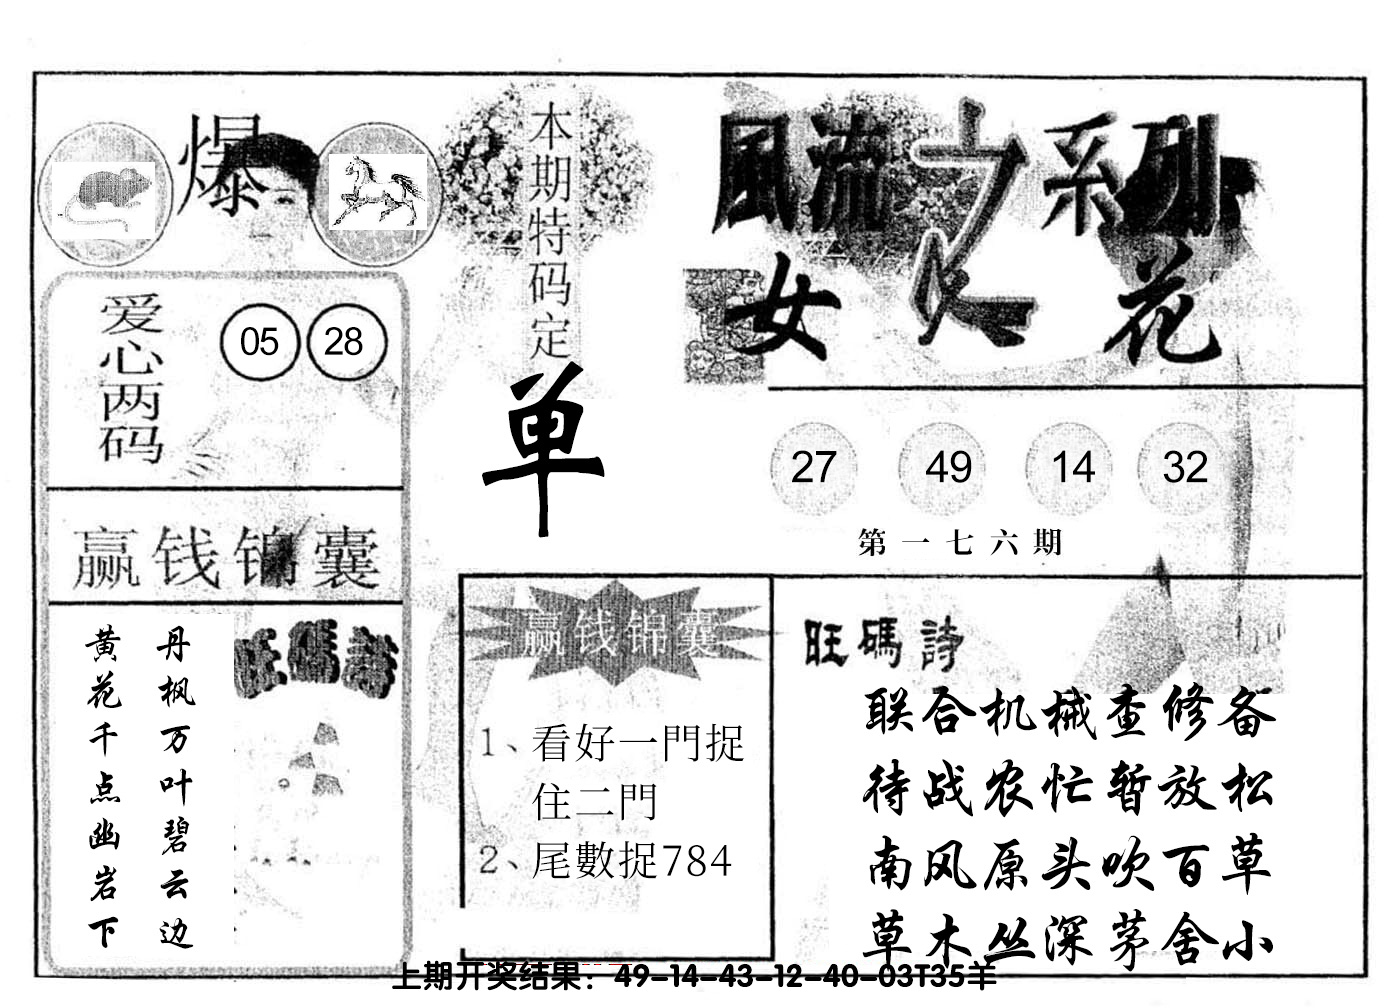 爆
本期特码定
单
風流之系列
女人花
爱心两码
05 28
赢钱锦囊
丹枫万叶碧云边
黄花千点幽岩下
旺碼詩
27 49 14 32
第一七六期
赢钱锦囊
1、看好一門捉
住二門
2、尾數捉784
旺碼詩
联合机械查修备
待战农忙暂放松
南风原头吹百草
草木丛深茅舍小
上期开奖结果：49-14-43-12-40-03T35羊